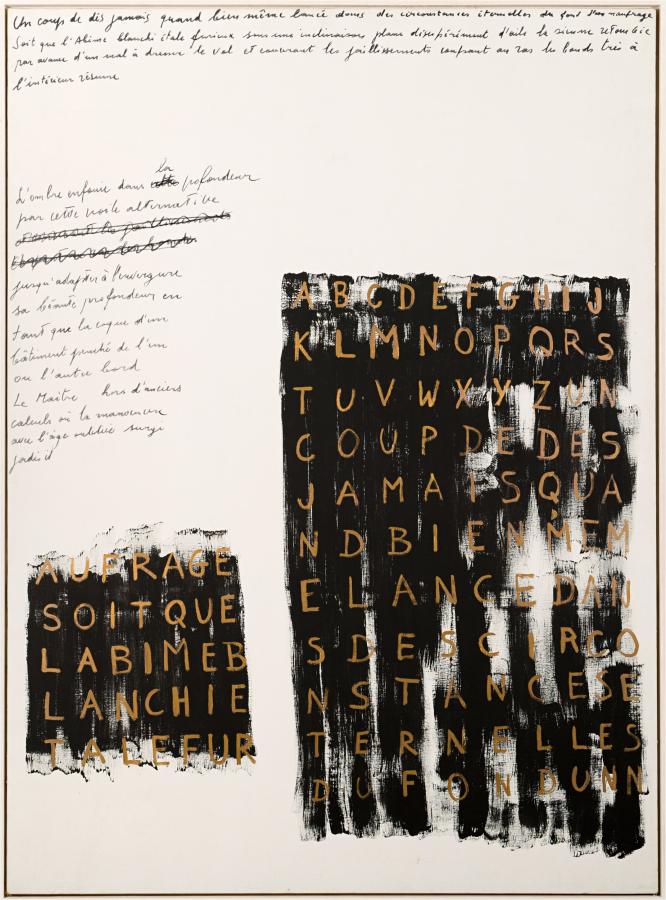 Un coup de dés jamais quand bien même lancé dans des circonstances éternelles du fond d'un naufrage
Soit que l'Abîme blanchi étale furieux sous une inclinaison plane désespérément d'aile la sienne retombée
par avance d'un mal à dresser le vol et couvrant les jaillissements coupant au ras les bonds très à
l'intérieur résume
la
L'ombre enfouie dans cette profondeur
par cette voile alternative
jusqu'adapter à l'envergure
sa béante profondeur en
tant que la coque d'un
bâtiment penché de l'un
ou l'autre bord
Le Maître hors d'anciens
calculs où la manoeuvre
avec l'âge oubliée surgi
jadis il
ABCDEFGHIJ
KLMNOPQRS
TUVWXYZUN
COUPDEDES
JAMAISQUA
NDBIENMEM
ELANCEDAN
SDESCIRCO
NSTANCESE
TERNELLES
DUFONDUNN
AUFRAGE
SOITQUE
LABIMEB
LANCHIE
TALEFUR